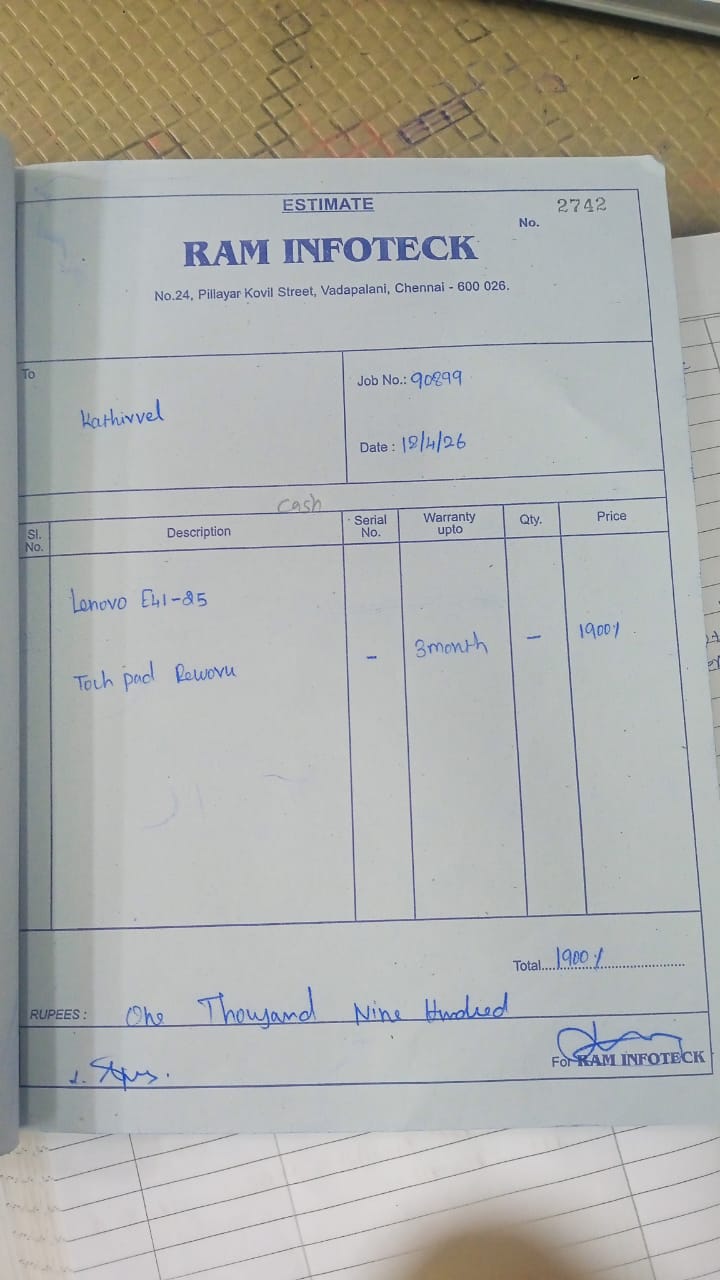 ESTIMATE
No. 2742
RAM INFOTECK
No.24, Pillayar Kovil Street, Vadapalani, Chennai - 600 026.
To
Kathirvel
Job No.: 90899
Date : 18/4/26
Cash
Sl. No. Description Serial No. Warranty upto Qty. Price
Lenovo E41-25
Toch pad Reworu - 3month - 1900/
Total....1900/
RUPEES : One Thousand Nine Hundred
For RAM INFOTECK